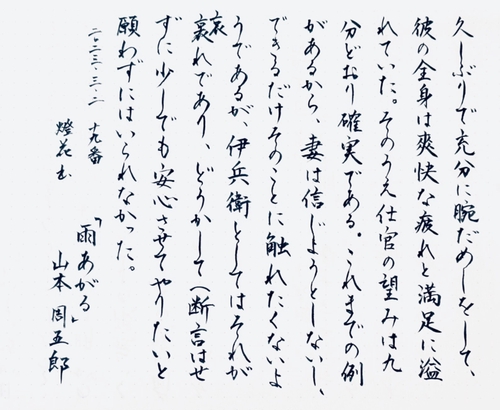 久しぶりで充分に腕だめしをして、
彼の全身は爽快な疲れと満足に溢
れていた。そのうえ仕官の望みは九
分どおり確実である。これまでの例
があるから、妻は信じようとしないし、
できるだけそのことに触れたくないよ
うであるが、伊兵衛としてはそれが
哀れであり、どうかして(断言はせ
ずに少しでも安心させてやりたいと
願わずにはいられなかった。
二〇二三・三・二 十九番
燈花書
「雨あがる」
山本周五郎